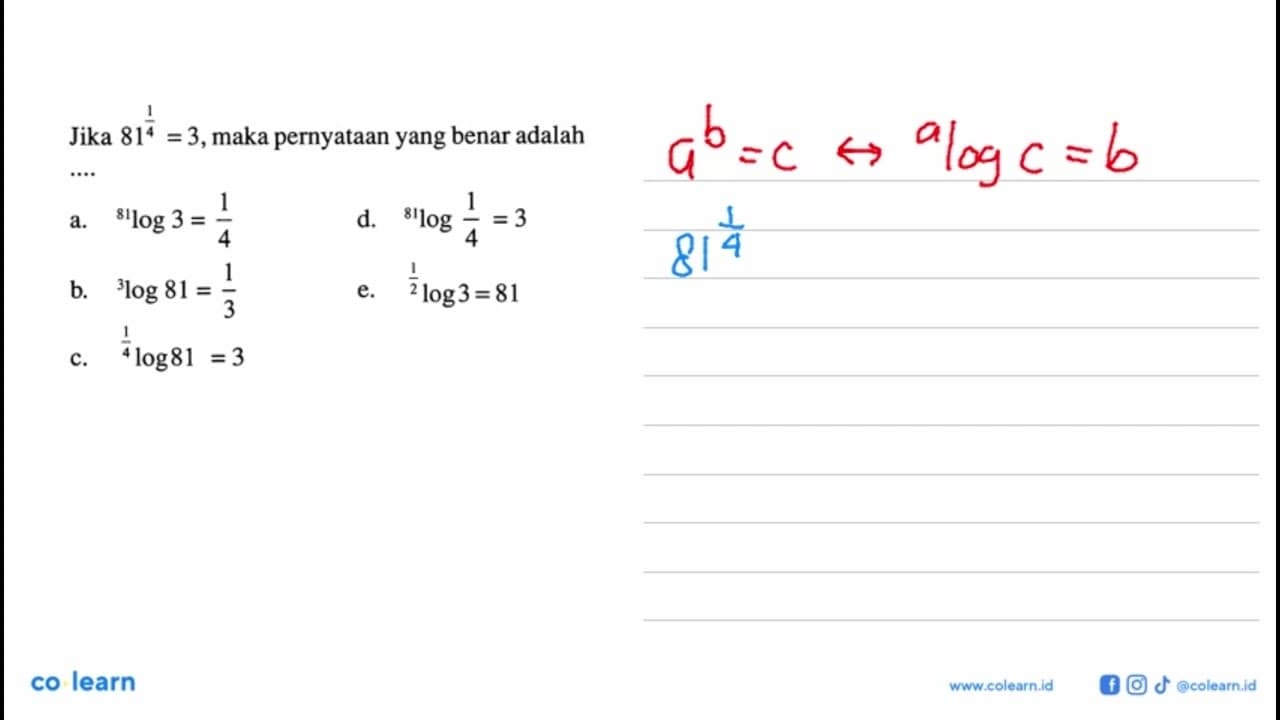 Jika 81^(1/4) = 3, maka pernyataan yang benar adalah
....
a. ⁸¹log 3 = 1/4
d. ⁸¹log 1/4 = 3
b. ³log 81 = 1/3
e. ^(1/2)log 3 = 81
c. ^(1/4)log 81 = 3
a^b = c ↔ ᵃlog c = b
81^(1/4)
co learn
www.colearn.id
@colearn.id